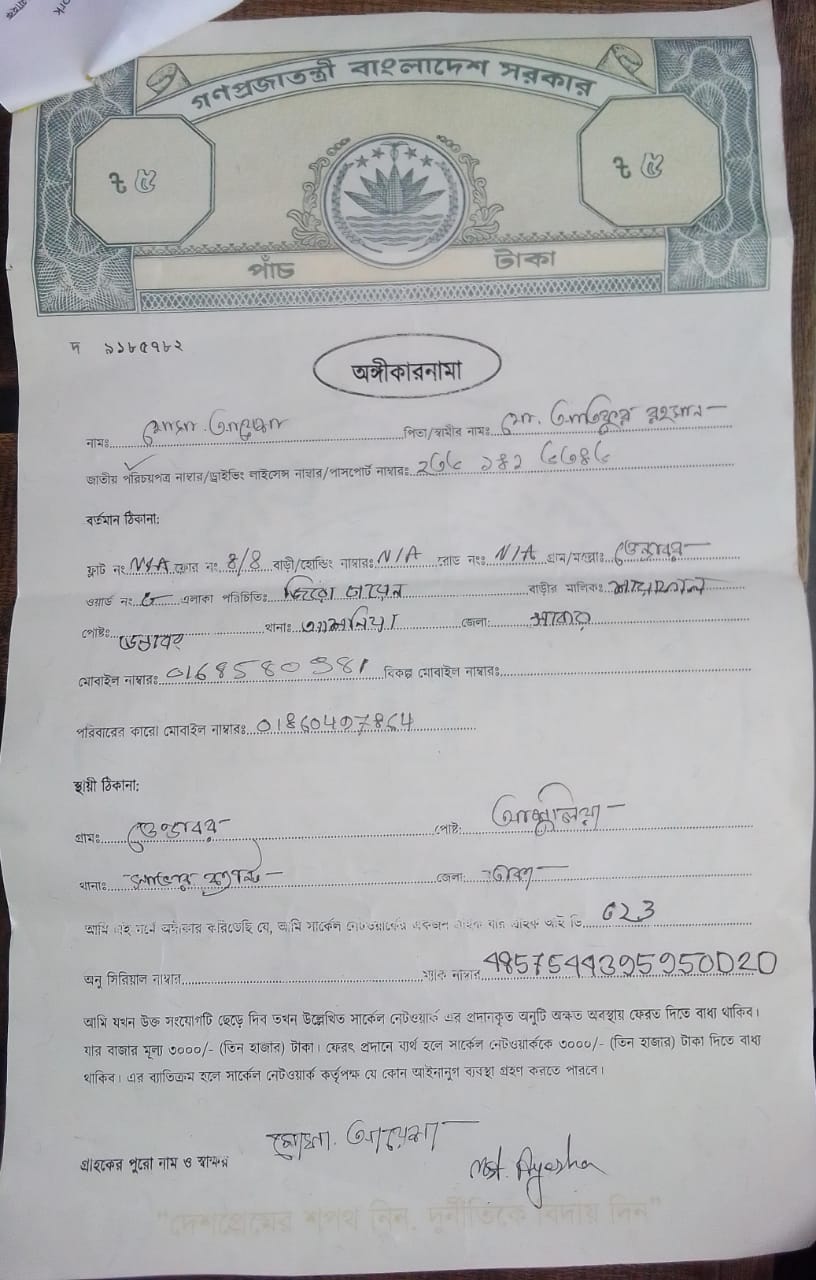 ork
গণপ্রজাতন্ত্রী বাংলাদেশ সরকার
৳ ৫ ৳ ৫
পাঁচ টাকা
দ ৯১৮৫৭৮২
অঙ্গীকারনামা
নামঃ মোসা. আয়েশা পিতা/স্বামীর নামঃ মো. আতিকুর রহমান
জাতীয় পরিচয়পত্র নাম্বার/ড্রাইভিং লাইসেন্স নাম্বার/পাসপোর্ট নাম্বারঃ
বর্তমান ঠিকানা:
ফ্লাট নং N/A ফ্লোর নং 8/8 বাড়ী/হোল্ডিং নাম্বারঃ N/A রোড নংঃ N/A গ্রাম/মহল্লাঃ
ওয়ার্ড নং ৫ এলাকা পরিচিতিঃ জিরো পয়েন্ট বাড়ীর মালিকঃ
পোষ্টঃ থানাঃ আশুলিয়া জেলা:
মোবাইল নাম্বারঃ 01685580981 বিকল্প মোবাইল নাম্বারঃ
পরিবারের কারো মোবাইল নাম্বারঃ 01860497864
স্থায়ী ঠিকানা:
গ্রামঃ পোষ্ট: আশুলিয়া
থানাঃ জেলা: ঢাকা
আমি এই মর্মে অঙ্গীকার করিতেছি যে, আমি সার্কেল নেটওয়ার্কের একজন গ্রাহক যার গ্রাহক আই ডি 023
অনু সিরিয়াল নাম্বার ম্যাক নাম্বার 4857544395950D20
আমি যখন উক্ত সংযোগটি ছেড়ে দিব তখন উল্লেখিত সার্কেল নেটওয়ার্ক এর প্রদানকৃত অনুটি অক্ষত অবস্থায় ফেরত দিতে বাধ্য থাকিব।
যার বাজার মূল্য ৩০০০/- (তিন হাজার) টাকা। ফেরৎ প্রদানে ব্যর্থ হলে সার্কেল নেটওয়ার্ককে ৩০০০/- (তিন হাজার) টাকা দিতে বাধ্য
থাকিব। এর ব্যতিক্রম হলে সার্কেল নেটওয়ার্ক কর্তৃপক্ষ যে কোন আইনানুগ ব্যবস্থা গ্রহণ করতে পারবে।
গ্রাহকের পুরো নাম ও স্বাক্ষর মোসা. আয়েশা Mst. Ayesha
"দেশপ্রেমের শপথ নিন, দুর্নীতিকে বিদায় দিন"